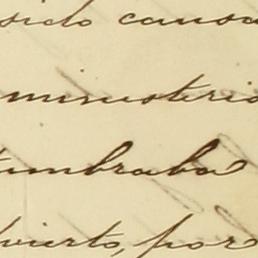 sido causa
ministerio
tumbraba
bierto, por